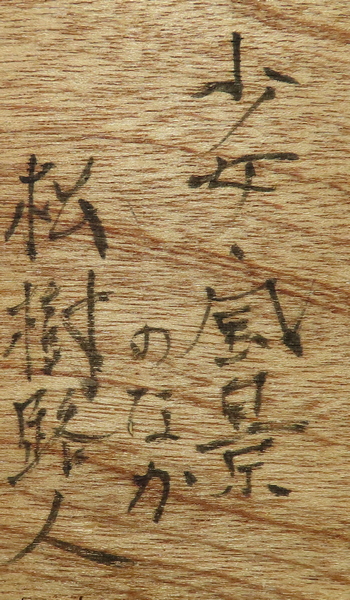 少女・風景
のなか
松樹路人